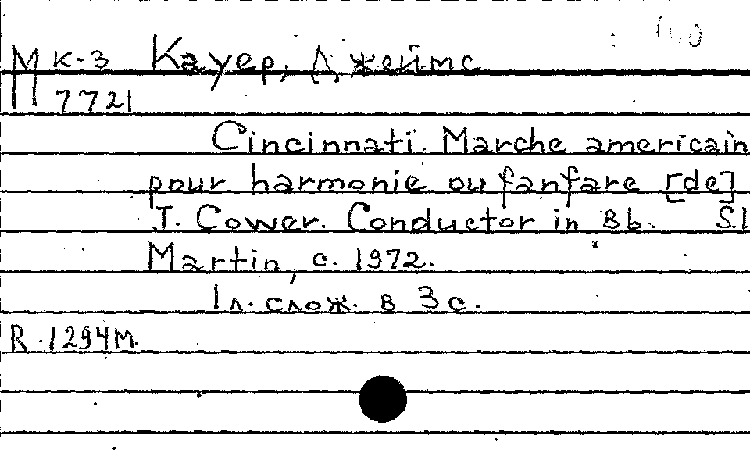 М к-3 Кауер, Джеймс
7721
Cincinnati. Marche americain
pour harmonie ou fanfare [de]
J. Cower. Conductor in Bb. S.l
Martin, c. 1972.
1 л. слож. в 3 с.
R. 1294м.